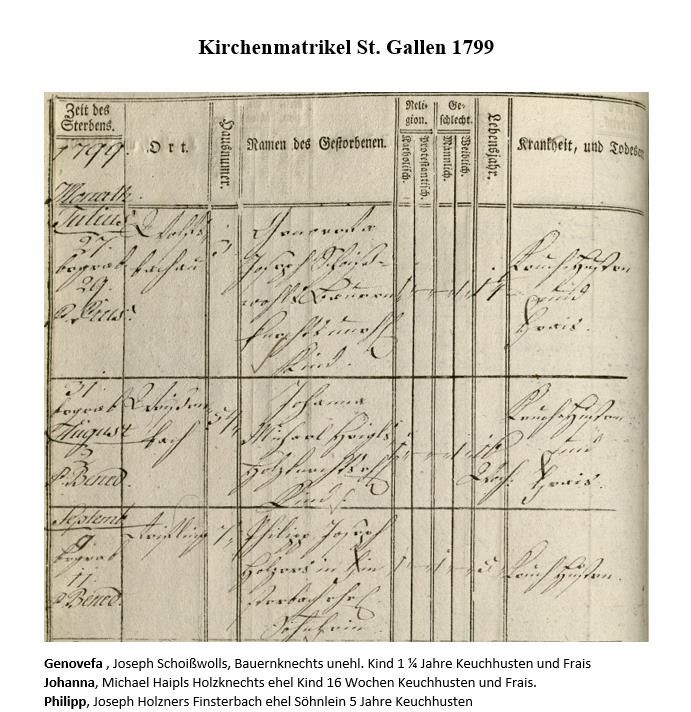 Kirchenmatrikel St. Gallen 1799
Zeit des
Sterbens.
1799.
Ort.
Hausnumer.
Namen des Gestorbenen.
Reli-
gion.
Katholisch.
Protestantisch.
Ge-
schlecht.
Männlich.
Weiblich.
Lebensjahr.
Krankheit, und Todes
Monath
Julius
27.
begrab
29.
bachau
Genovefa
Joseph Schoiß-
wolls Bauern
knechts unehl
Kind.
1 1/4
Keuchhusten
und
Frais.
31
begrab
August
3
P. Bened.
bach
Johanna
Michael Haipls
Holzknechts ehl
Kind
16
Woch.
Keuchhusten
und
Frais.
Septemb
9
begrab
11.
P. Bened.
Philipp Joseph
Holzners in Fin
sterbach ehel
Söhnlein.
5
Keuchhusten.
Genovefa , Joseph Schoißwolls, Bauernknechts unehl. Kind 1 ¼ Jahre Keuchhusten und Frais
Johanna, Michael Haipls Holzknechts ehel Kind 16 Wochen Keuchhusten und Frais.
Philipp, Joseph Holzners Finsterbach ehel Söhnlein 5 Jahre Keuchhusten